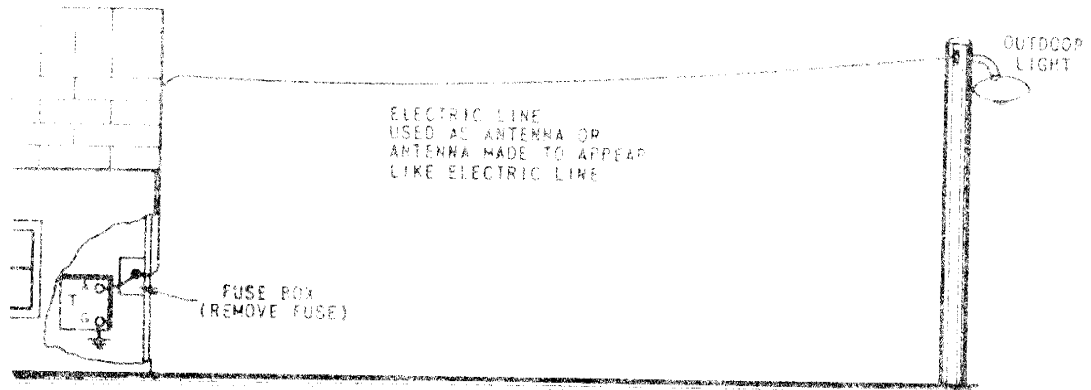 OUTDOOR
LIGHT
ELECTRIC LINE
USED AS ANTENNA OR
ANTENNA MADE TO APPEAR
LIKE ELECTRIC LINE
FUSE BOX
(REMOVE FUSE)
A
T
G